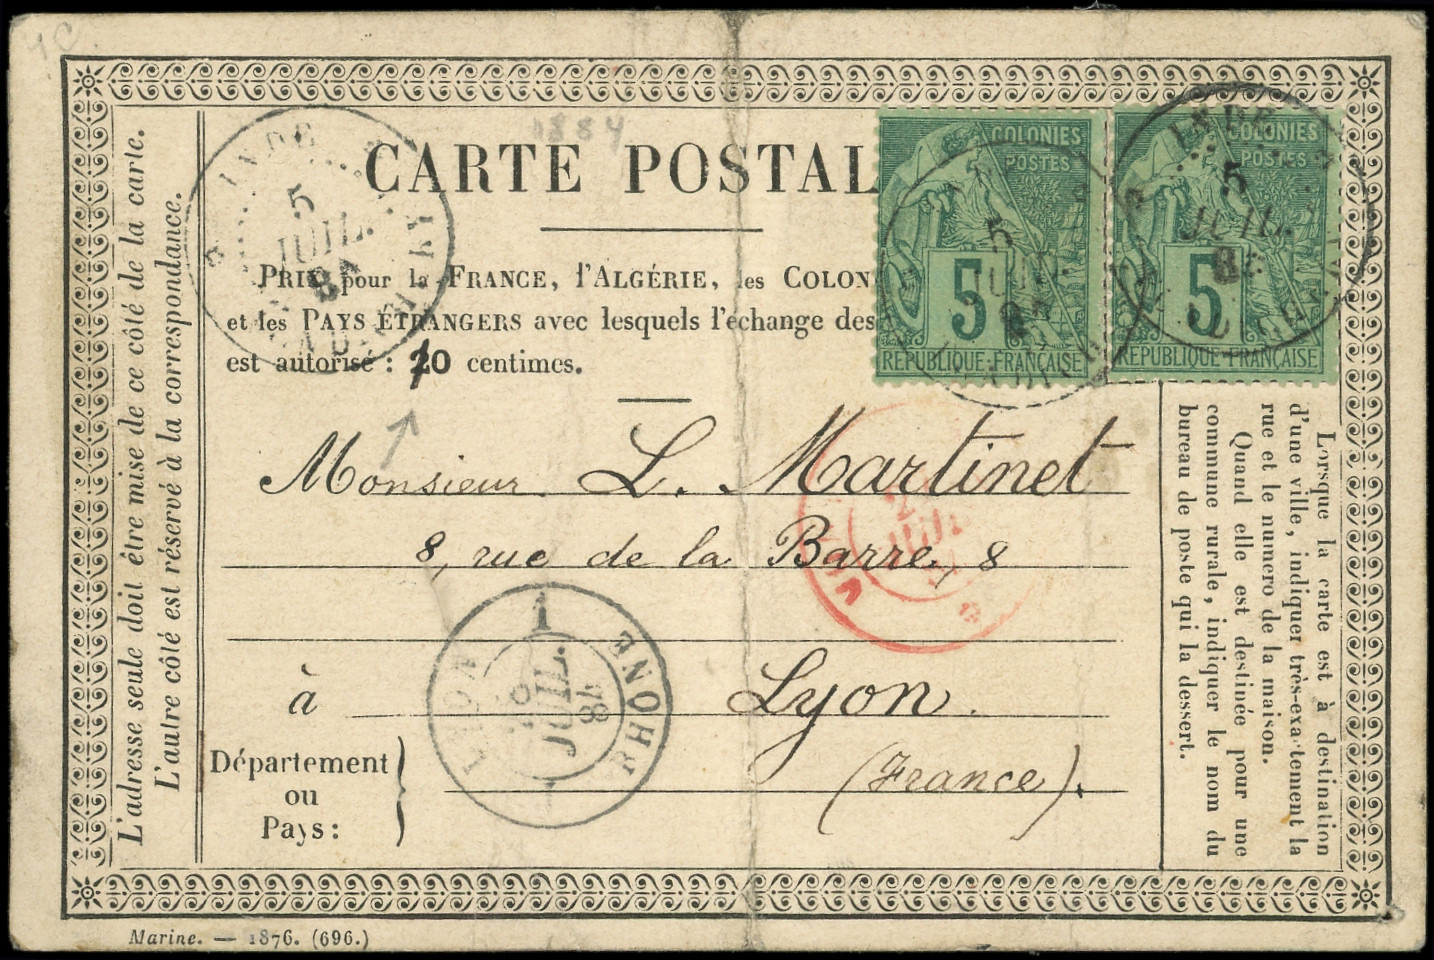 1884
CARTE POSTAL
PRIX pour la FRANCE, l'ALGÉRIE, les COLON
et les PAYS ÉTRANGERS avec lesquels l'échange des
est autorisé : 10 centimes.
COLONIES
POSTES
5
RÉPUBLIQUE FRANÇAISE
COLONIES
POSTES
5
RÉPUBLIQUE FRANÇAISE
INDE
5
JUIL.
INDE
5
JUIL.
5
Monsieur L. Martinet
8, rue de la Barre, 8
à Lyon.
(France).
Département
ou
Pays:
1
LYON
RHONE
JUIL.
84
JUIL
L'adresse seule doit être mise de ce côté de la carte.
L'autre côté est réservé à la correspondance.
Lorsque la carte est à destination
d'une ville, indiquer très-exactement la
rue et le numero de la maison.
Quand elle est destinée pour une
commune rurale, indiquer le nom du
bureau de poste qui la dessert.
Marine. — 1876. (696.)